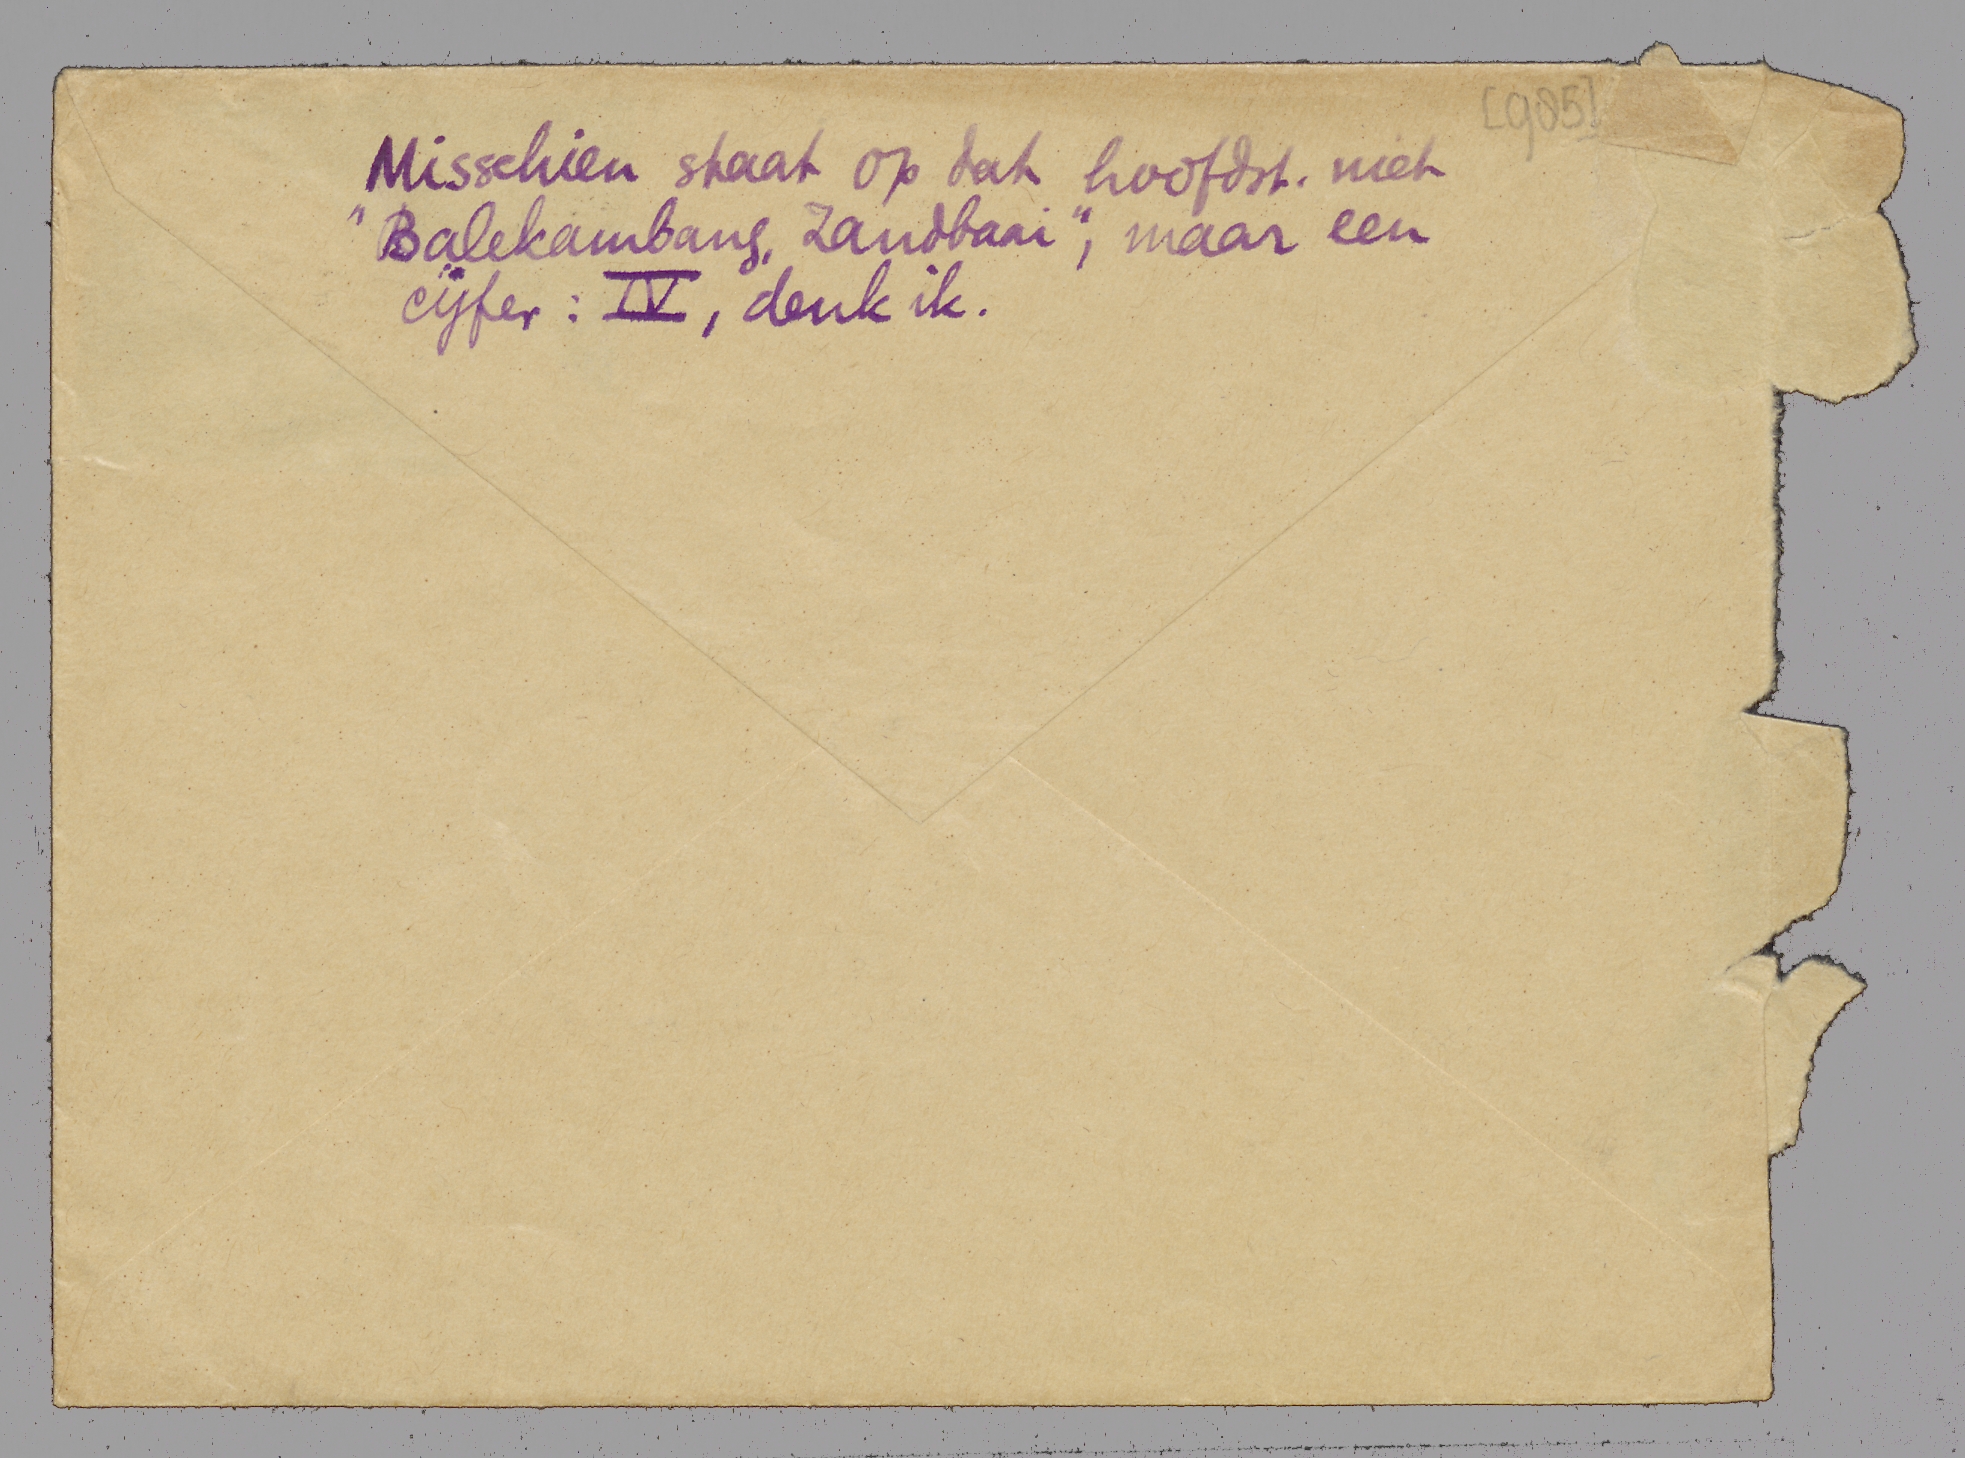 [985]
Misschien staat op dat hoofdst. niet
"Balekambang, Zandbaai", maar een
cijfer: IV, denk ik.